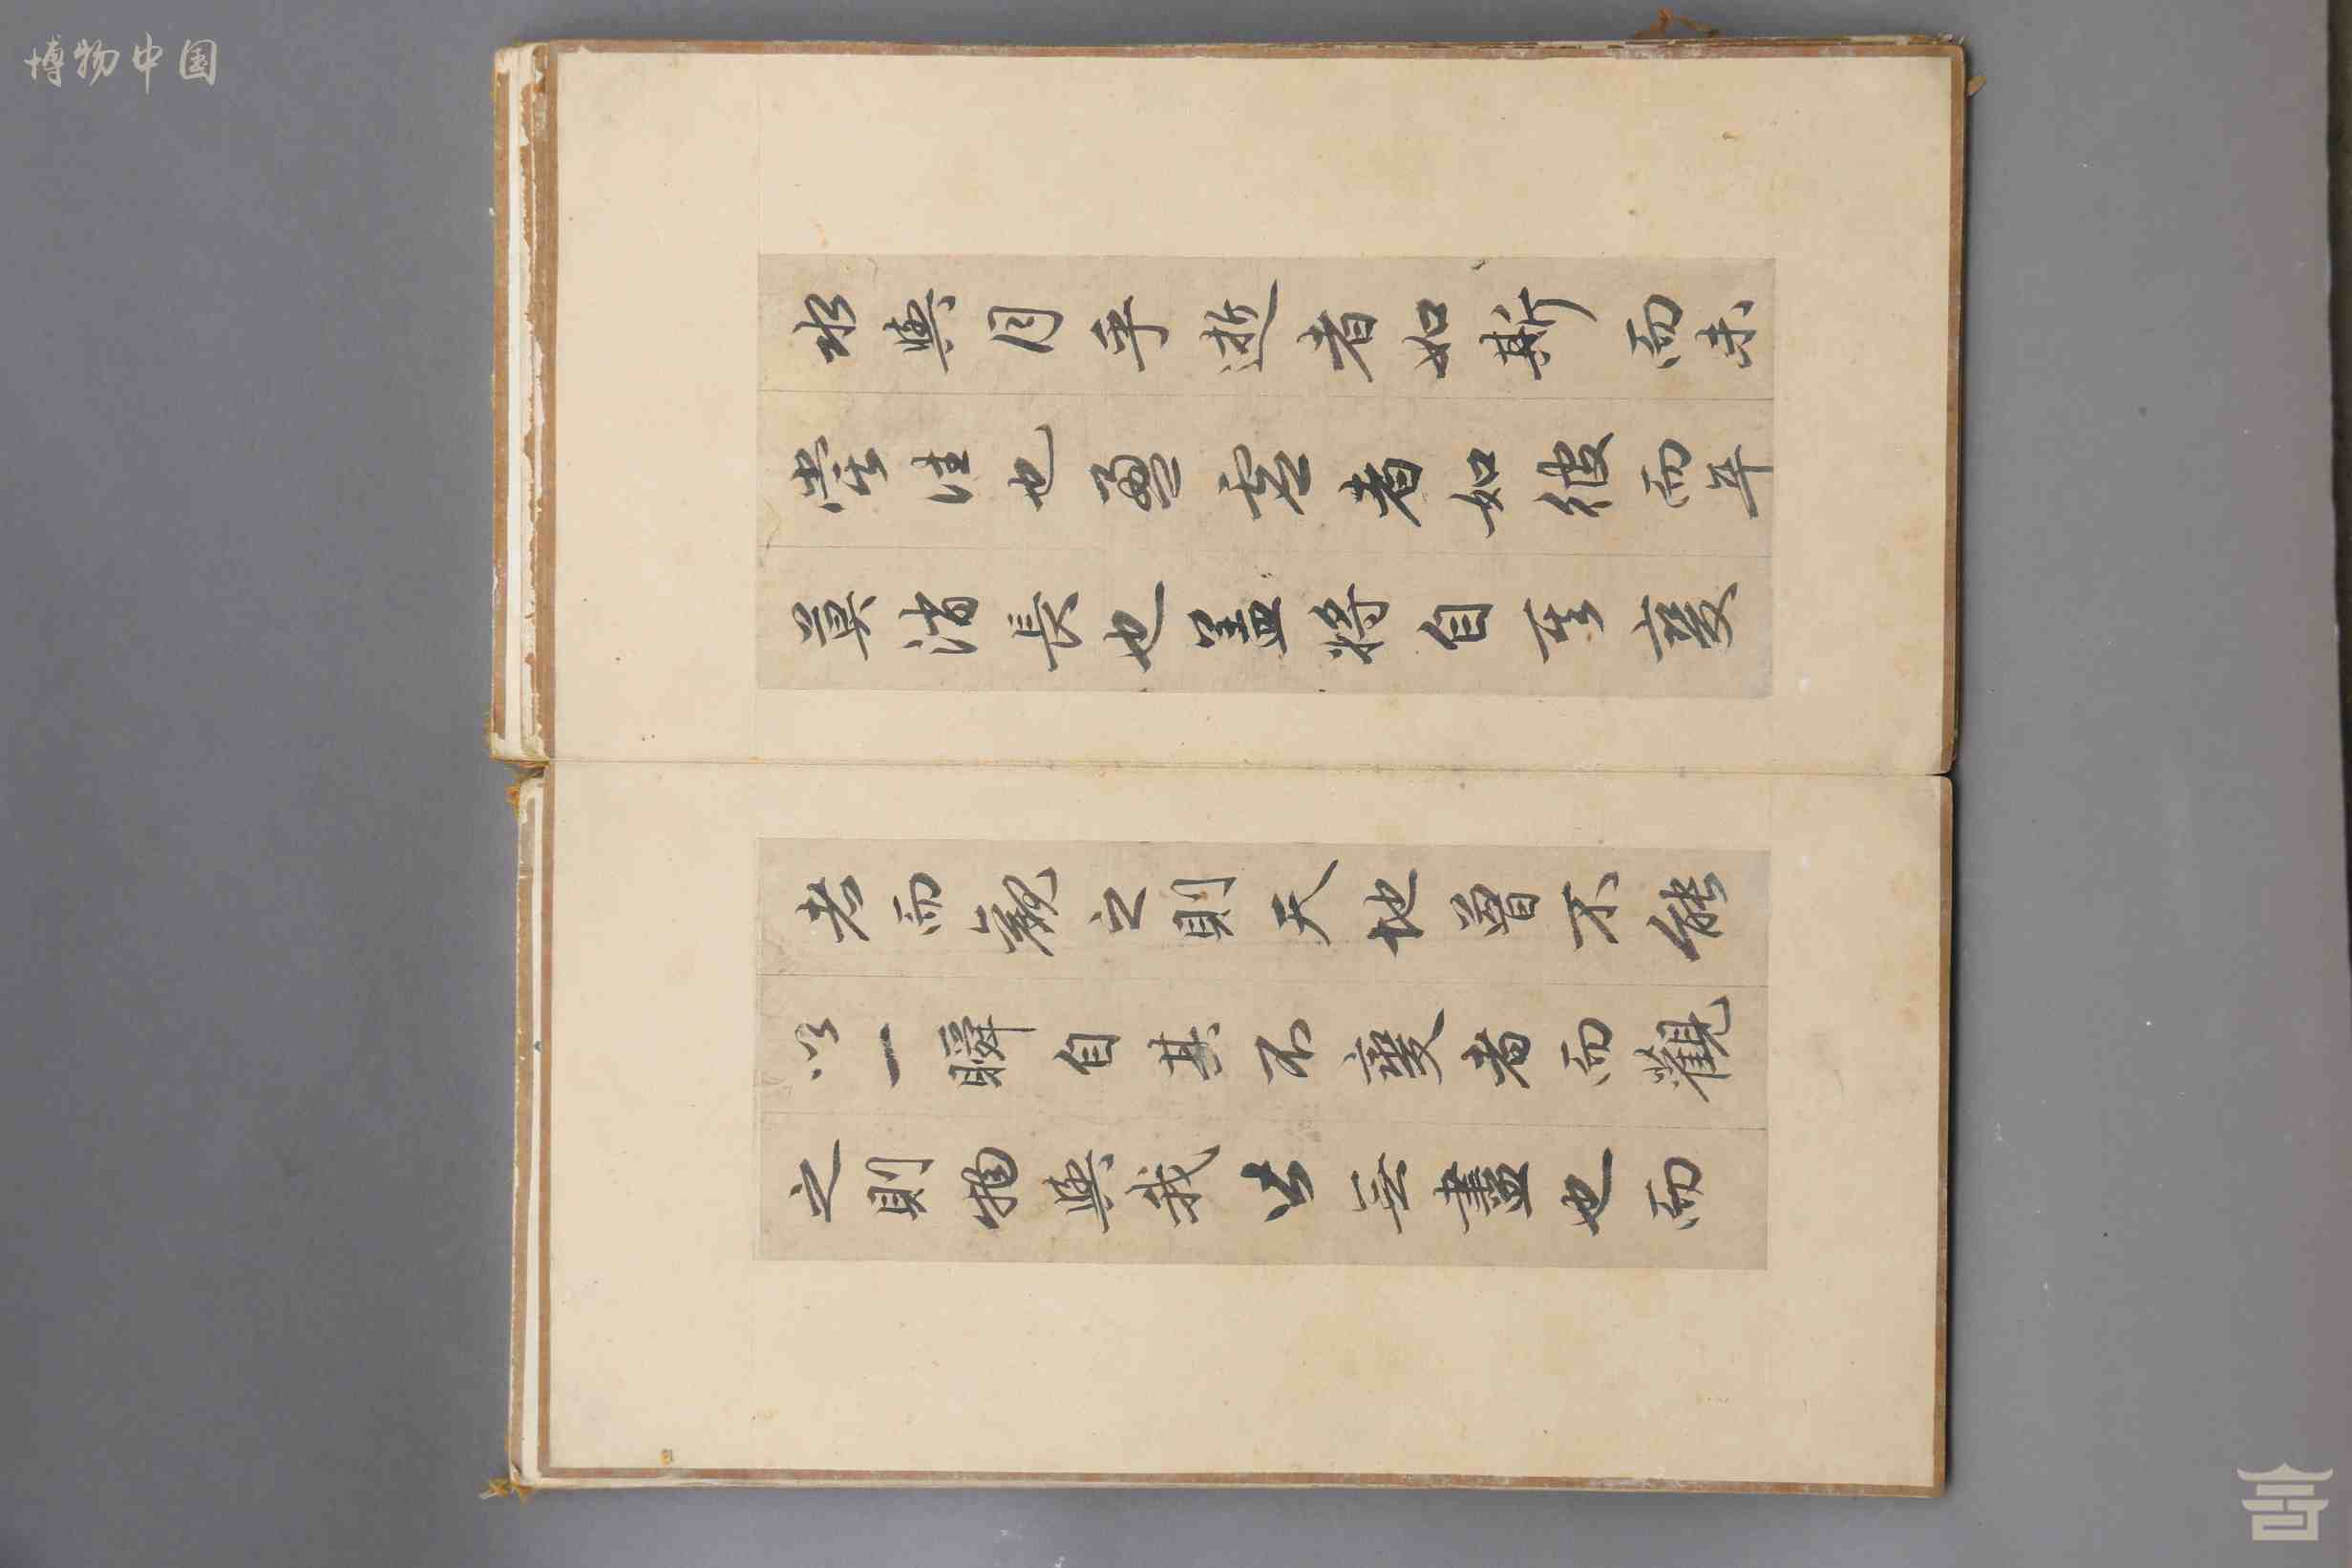 博物中国
水與月乎逝者如斯而未
嘗往也盈虛者如彼而卒
莫消長也盖將自其變
者而觀之則天地曾不能
以一瞬自其不變者而觀
之則物與我皆无盡也而